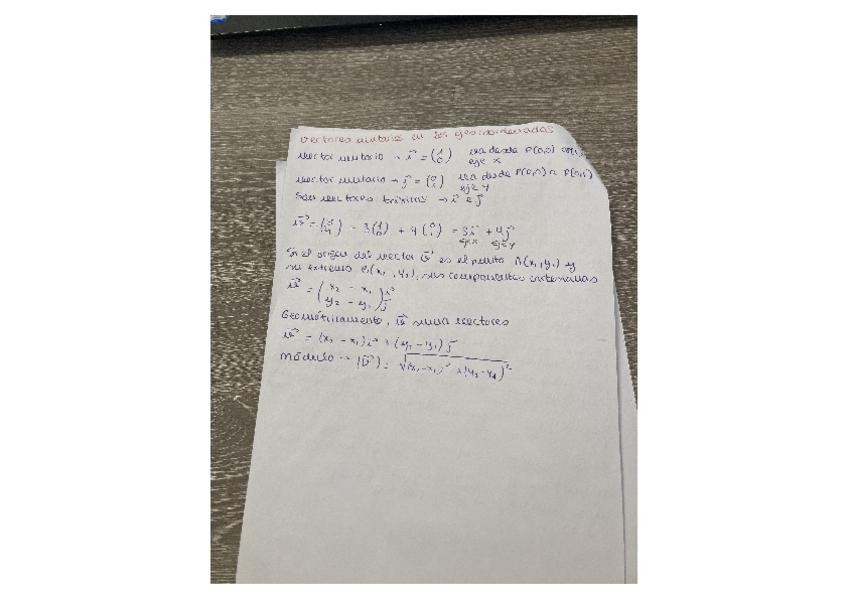 vectores unitarios en los ejes coordenados
vector unitario → i⃗ = (1 0) va desde P(0,0)
eje x
vector unitario → j⃗ = (0 1) va desde P(0,0) a P(0,1)
eje y
Son vectores básicos → i⃗ e j⃗
v⃗ = (3 4) = 3(1 0) + 4(0 1) = 3i⃗ + 4j⃗
eje x eje y
el origen del vector v⃗ es el punto A(x₁, y₁) y
su extremo (x₂, y₂), sus componentes cartesianas
v⃗ = (x₂ - x₁ y₂ - y₁) i⃗ j⃗
Geométricamente, v⃗ vectores
v⃗ = (x₂ - x₁)i⃗ + (y₂ - y₁)j⃗
módulo → |v⃗| = √(x₂ - x₁)² + (y₂ - y₁)²